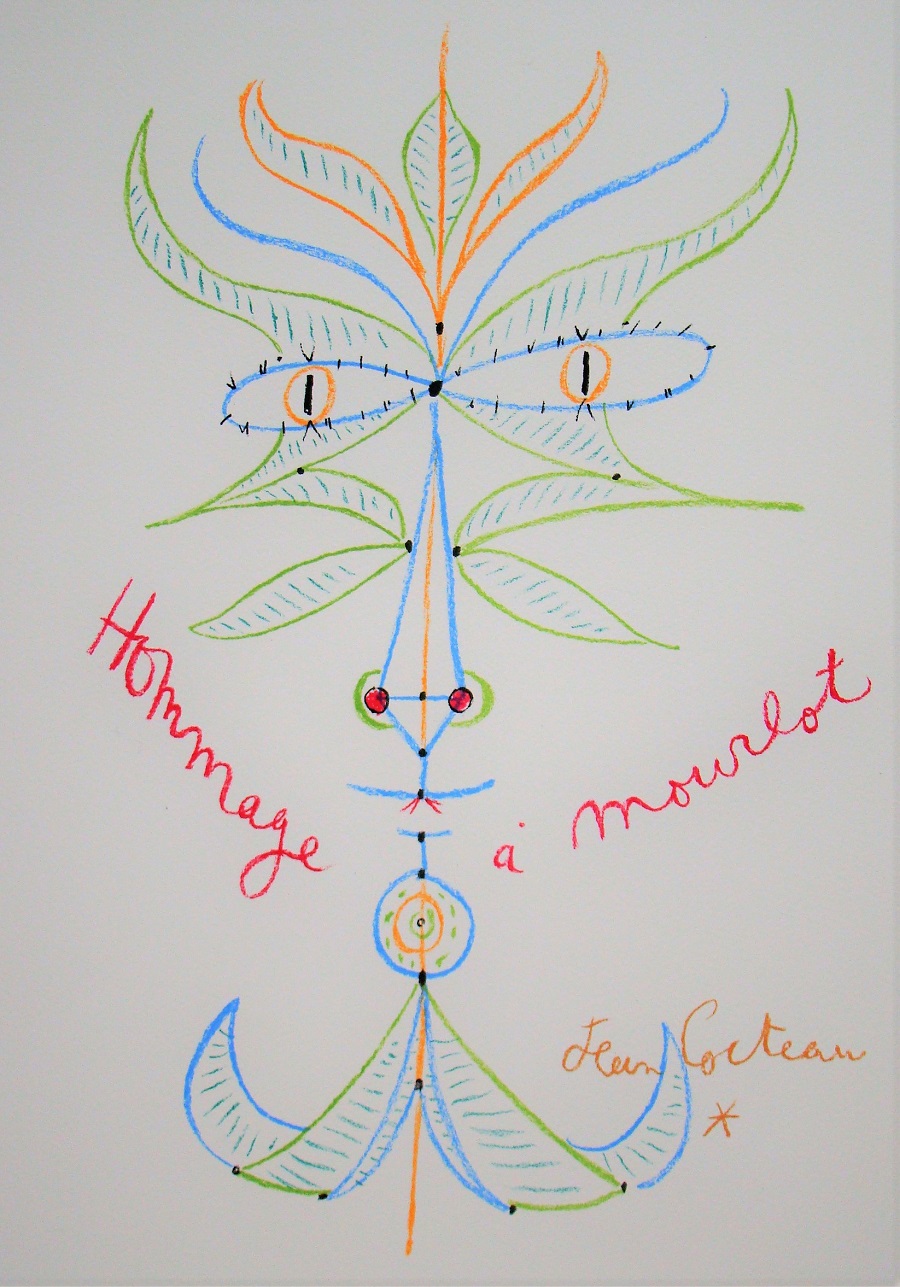 Hommage à mourlot
Jean Cocteau